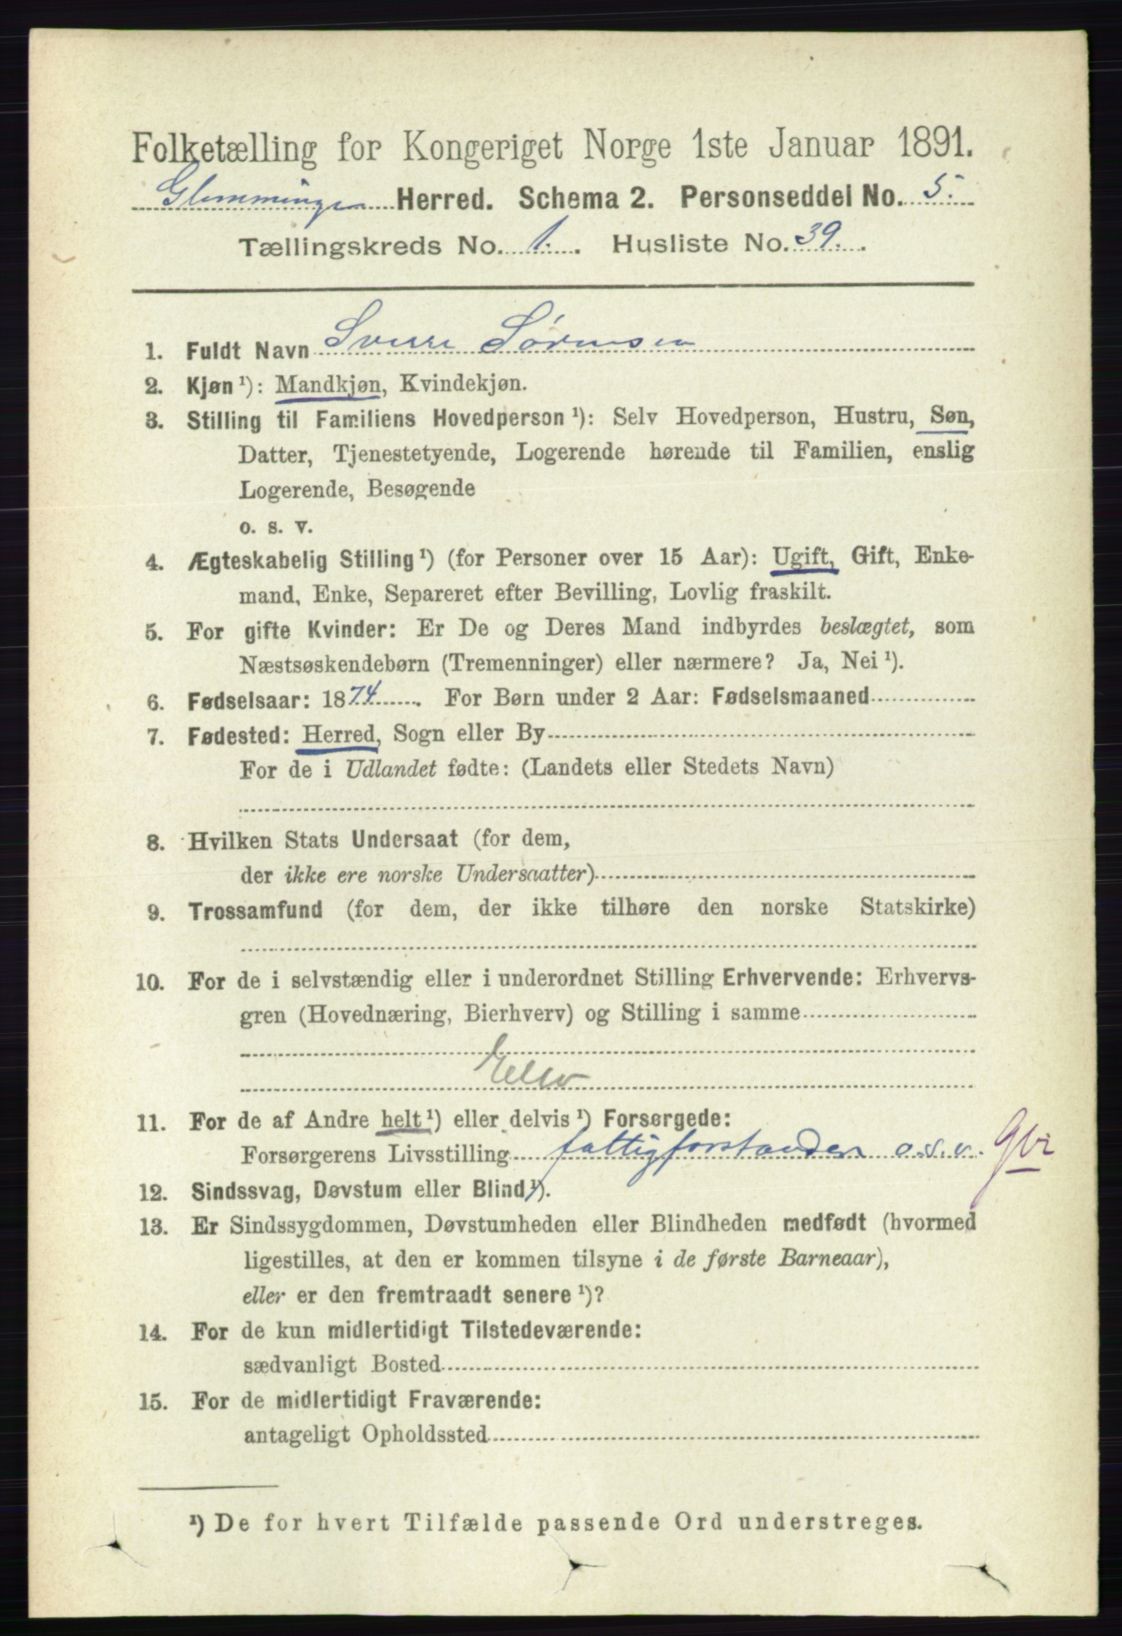 Folketælling for Kongeriget Norge 1ste Januar 1891.
Glemminge Herred. Schema 2. Personseddel No. 5.
Tællingskreds No. 1. Husliste No. 39.
1. Fuldt Navn Sverre Sörensen
2. Kjøn ¹): Mandkjøn, Kvindekjøn.
3. Stilling til Familiens Hovedperson ¹): Selv Hovedperson, Hustru, Søn,
Datter, Tjenestetyende, Logerende hørende til Familien, enslig
Logerende, Besøgende
o. s. v.
4. Ægteskabelig Stilling ¹) (for Personer over 15 Aar): Ugift, Gift, Enke-
mand, Enke, Separeret efter Bevilling, Lovlig fraskilt.
5. For gifte Kvinder: Er De og Deres Mand indbyrdes beslægtet, som
Næstsøskendebørn (Tremenninger) eller nærmere? Ja, Nei ¹).
6. Fødselsaar: 1874. For Børn under 2 Aar: Fødselsmaaned
7. Fødested: Herred, Sogn eller By
For de i Udlandet fødte: (Landets eller Stedets Navn)
8. Hvilken Stats Undersaat (for dem,
der ikke ere norske Undersaatter)
9. Trossamfund (for dem, der ikke tilhøre den norske Statskirke)
10. For de i selvstændig eller i underordnet Stilling Erhvervende: Erhvervs-
gren (Hovednæring, Bierhverv) og Stilling i samme
Elev
11. For de af Andre helt ¹) eller delvis ¹) Forsørgede:
Forsørgerens Livsstilling fattigforstander o.s.v.
12. Sindssvag, Døvstum eller Blind ¹).
13. Er Sindssygdommen, Døvstumheden eller Blindheden medfødt (hvormed
ligestilles, at den er kommen tilsyne i de første Barneaar),
eller er den fremtraadt senere ¹)?
14. For de kun midlertidigt Tilstedeværende:
sædvanligt Bosted
15. For de midlertidigt Fraværende:
antageligt Opholdssted
¹) De for hvert Tilfælde passende Ord understreges.